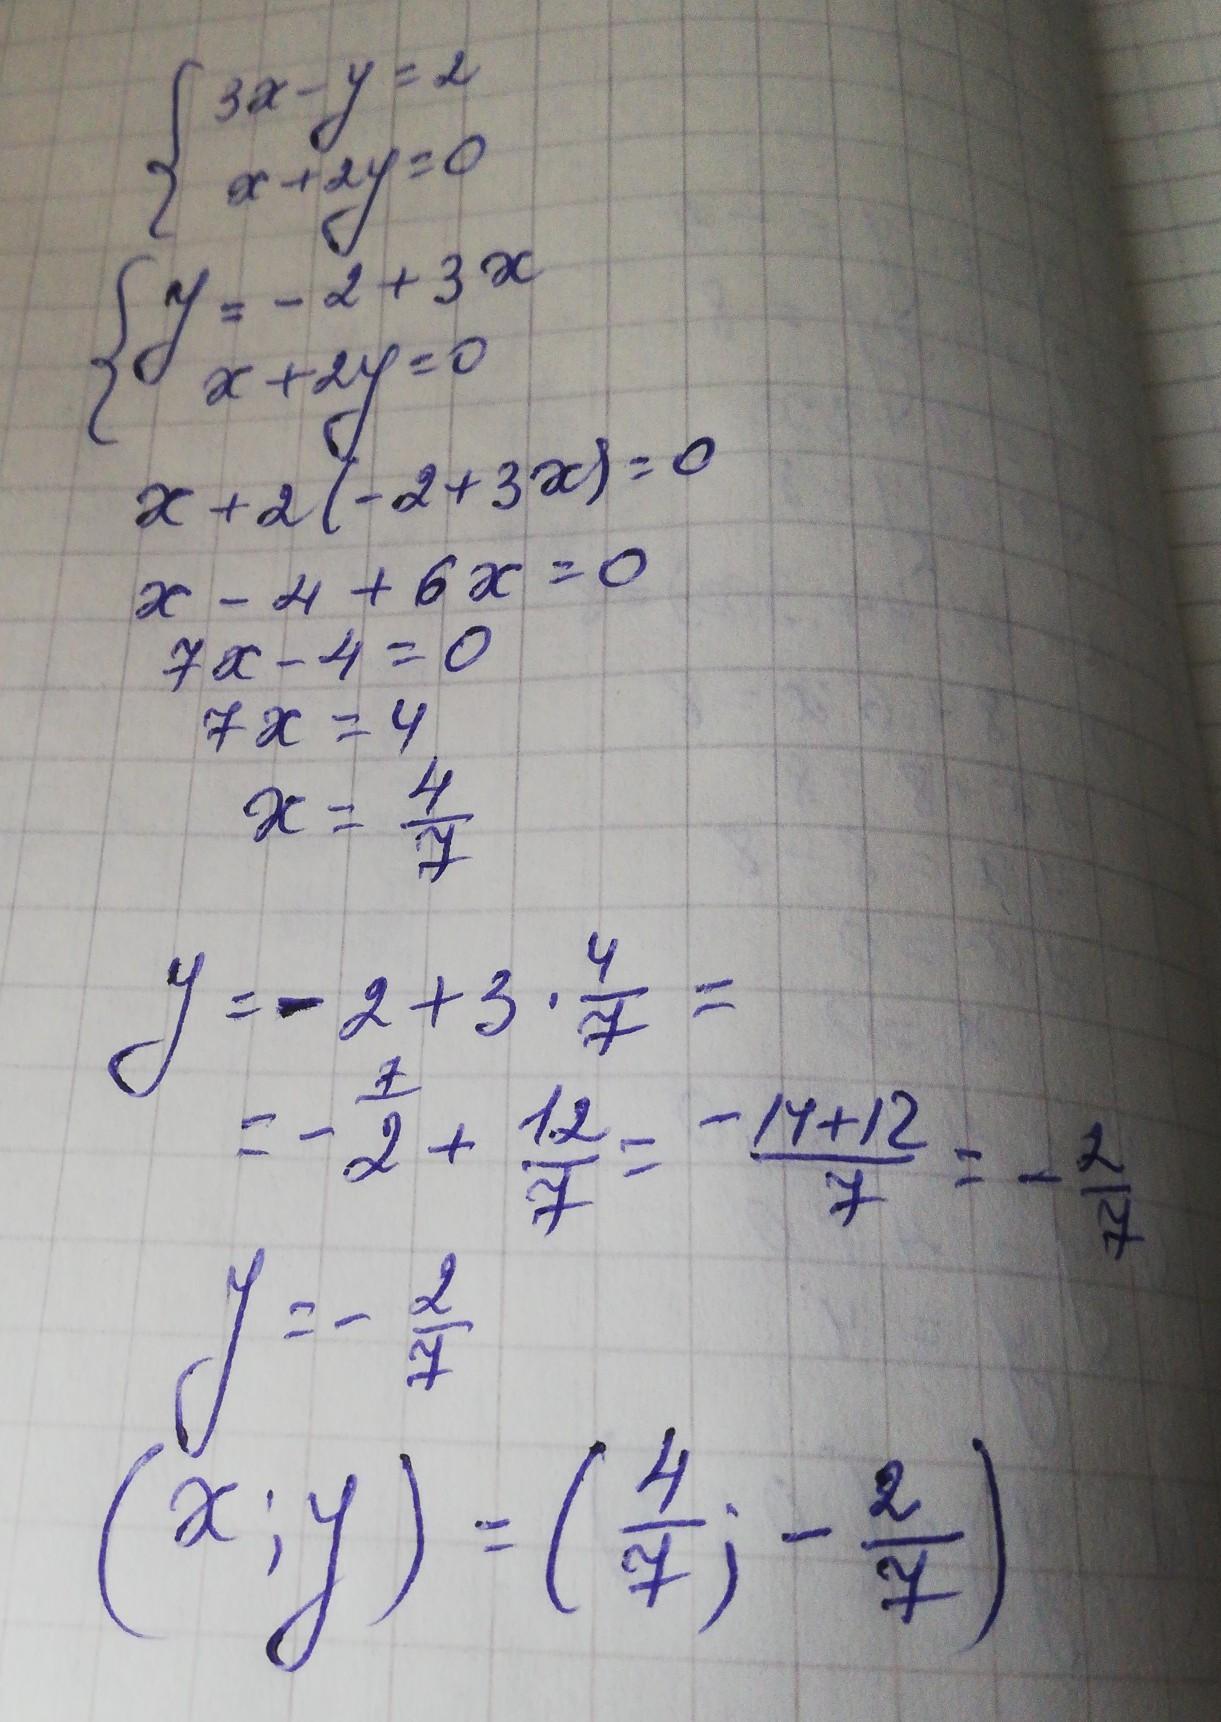 { 3x - y = 2
x + 2y = 0
{ y = - 2 + 3x
x + 2y = 0
x + 2(-2 + 3x) = 0
x - 4 + 6x = 0
7x - 4 = 0
7x = 4
x = 4/7
y = - 2 + 3 · 4/7 =
= - 2^7 + 12/7 = -14+12/7 = - 2/7
y = - 2/7
(x; y) = (4/7; - 2/7)